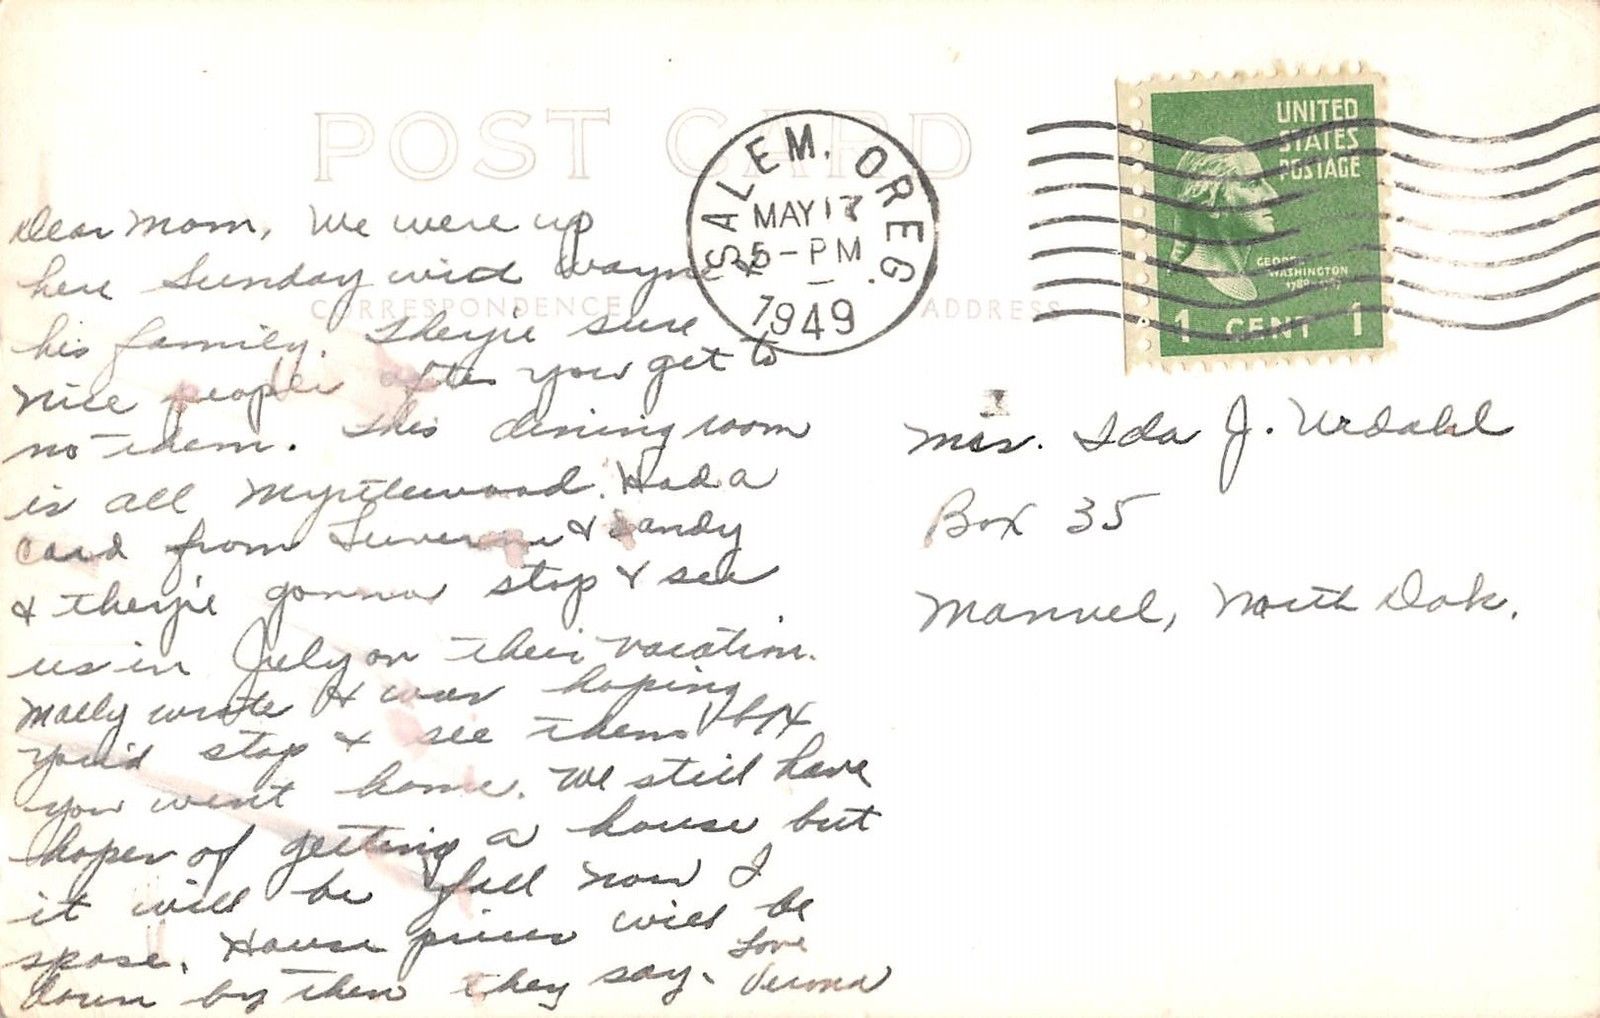 POST CARD
CORRESPONDENCE
ADDRESS
SALEM, OREG.
MAY 17
5-PM
1949
UNITED
STATES
POSTAGE
GEORGE
WASHINGTON
1 CENT 1
Dear Mom, We were up
here Sunday wid Wayne
his family. They're sure
nice people after you get to
no them. This dining room
is all Myrtlewood. Had a
card from Luverne & Sandy
& they're gonna stop & see
us in July on their vacation.
Mally wrote & was hoping
you'd stop & see them b4
you went home. We still have
hopes of getting a house but
it will be fall now I
spose. House prices will be
down by then they say. Love
Verona
Mrs. Ida J. Urdahl
Box 35
Manvel, North Dak.